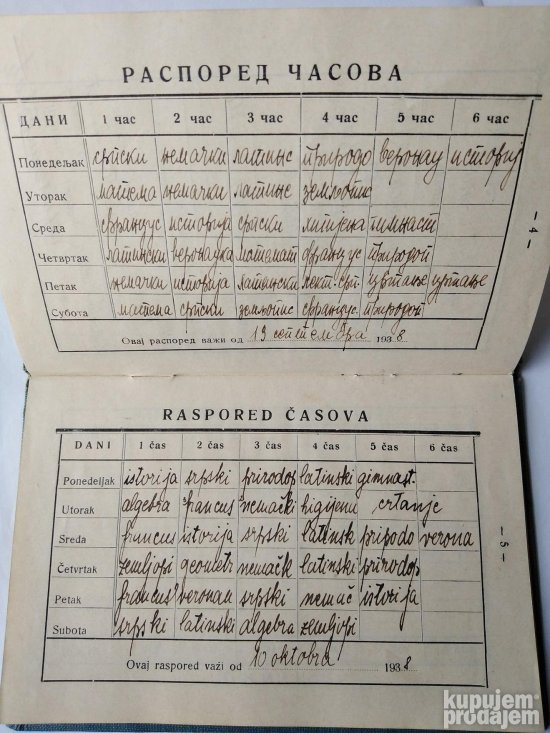 РАСПОРЕД ЧАСОВА
ДАНИ 1 час 2 час 3 час 4 час 5 час 6 час
Понедељак српски немачки латинс природо веронау историј
Уторак матема немачки латинс земљопис
Среда францус историја српски хигијена гимнаст
Четвртак латински веронаука математ францус природоп
Петак немачки историја латински лект. срп. цртање цртање
Субота матема српски земљопис францус. природоп
Овај распоред важи од 19 септембра 1938
- 4 -
RASPORED ČASOVA
DANI 1 čas 2 čas 3 čas 4 čas 5 čas 6 čas
Ponedeljak istorija srpski prirodop latinski gimnast.
Utorak algebra francus nemački higijenu crtanje
Sreda francus istorija srpski latinsk pripodo verona
Četvrtak zemljopi geometr nemačk latinski prirodop
Petak francus veronan srpski nemač istorija
Subota srpski latinski algebra zemljopi
Ovaj raspored važi od 10 oktobra 1938
- 5 -
kupujem
prodajem